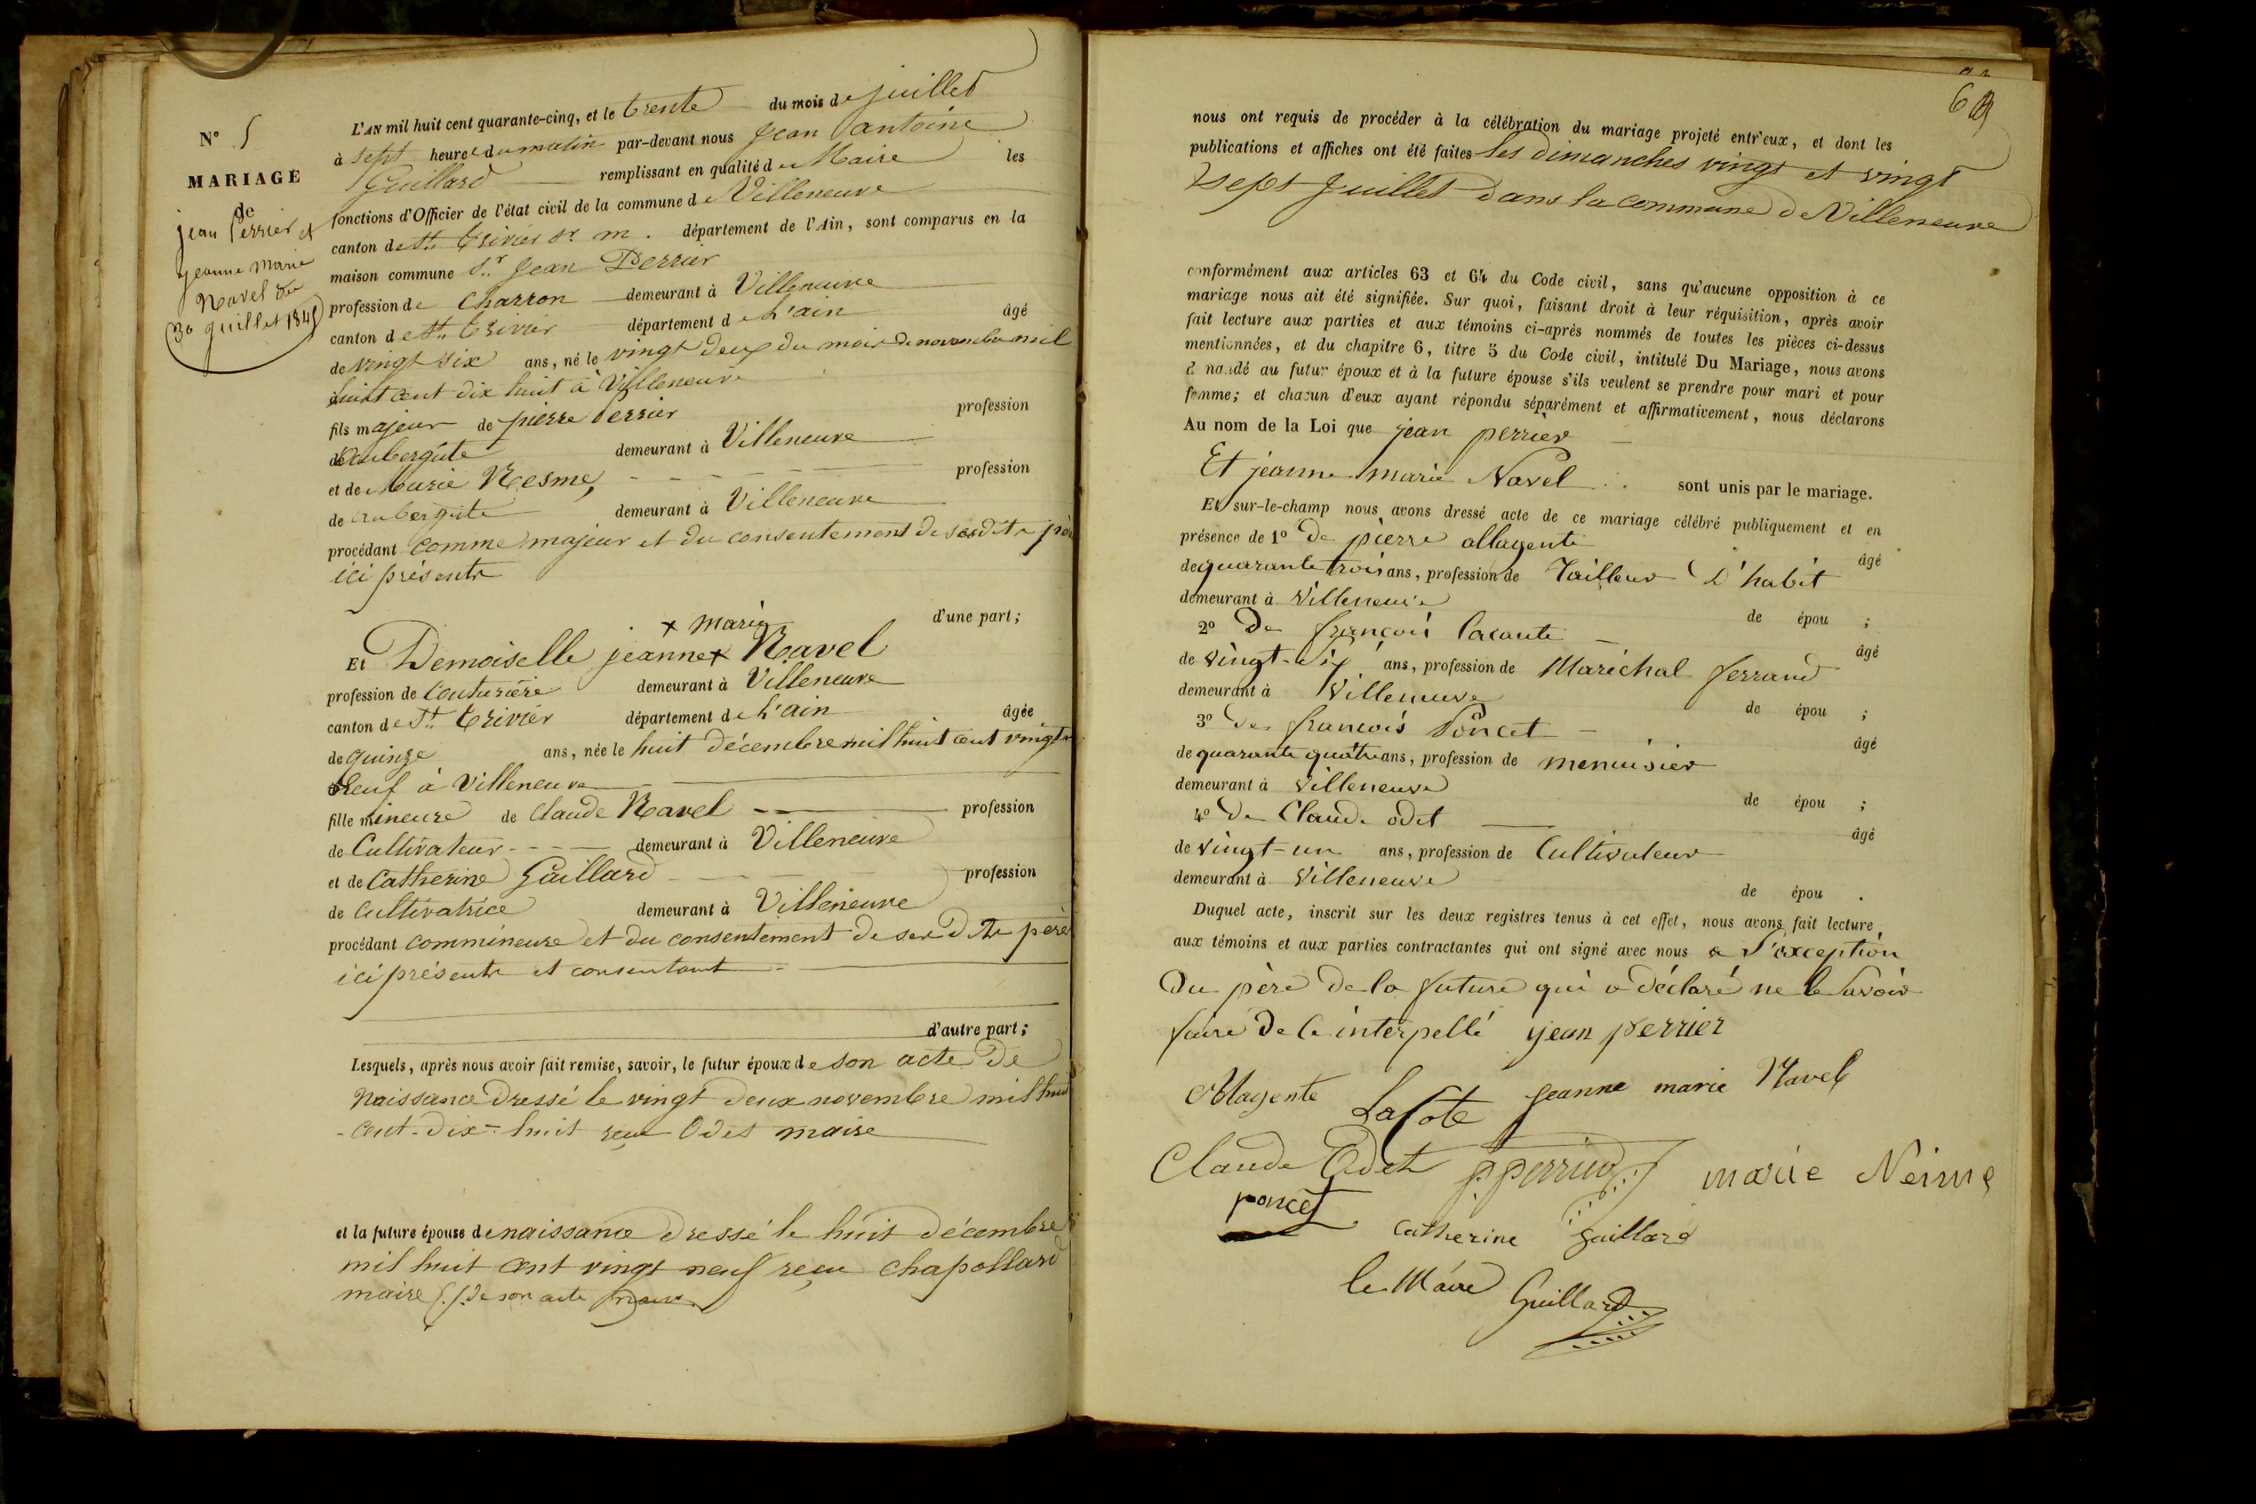 N° 5
MARIAGE
de
jean Perrier et
jeanne marie
Navel du
30 juillet 1845
L'AN mil huit cent quarante-cinq, et le trente du mois de juillet
à sept heures du matin par-devant nous Jean antoine
Guillard remplissant en qualité de Maire les
fonctions d'Officier de l'état civil de la commune de Villeneuve
canton de St. trivier sr. m. département de l'Ain, sont comparus en la
maison commune Sr. Jean Perrier
profession de Charron demeurant à Villeneuve
canton de St. trivier département de L'ain âgé
de vingt six ans, né le vingt deux du mois de novembre mil
huit cent dix huit à Villeneuve
fils majeur de pierre Perrier profession
d'aubergiste demeurant à Villeneuve
et de Marie Nesme, profession
de aubergiste demeurant à Villeneuve
procédant comme majeur et du consentement de père
ici présents
d'une part;
+ marie
Et Demoiselle jeanne + Navel
profession de Couturière demeurant à Villeneuve
canton de St. trivier département de L'ain âgée
de quinze ans, née le huit décembre mil huit cent vingt
neuf à Villeneuve
fille mineure de Claude Navel profession
de Cultivateur demeurant à Villeneuve
et de Catherine Gaillard profession
de Cultivatrice demeurant à Villeneuve
procédant comme mineure et du consentement de père
ici présents et consentant
d'autre part;
Lesquels, après nous avoir fait remise, savoir, le futur époux de son acte de
Naissance dressé le vingt deux novembre mil huit
- cent - dix - huit reçu Odet maire
et la future épouse de naissance dressé le huit décembre
mil huit cent vingt neuf reçu Chapollard
maire de son acte
69
nous ont requis de procéder à la célébration du mariage projeté entr'eux, et dont les
publications et affiches ont été faites les dimanches vingt et vingt
sept Juillet dans la commune de Villeneuve
conformément aux articles 63 et 64 du Code civil, sans qu'aucune opposition à ce
mariage nous ait été signifiée. Sur quoi, faisant droit à leur réquisition, après avoir
fait lecture aux parties et aux témoins ci-après nommés de toutes les pièces ci-dessus
mentionnées, et du chapitre 6, titre 5 du Code civil, intitulé Du Mariage, nous avons
demandé au futur époux et à la future épouse s'ils veulent se prendre pour mari et pour
femme; et chacun d'eux ayant répondu séparément et affirmativement, nous déclarons
Au nom de la Loi que jean perrier
Et jeanne marie Navel sont unis par le mariage.
Et sur-le-champ nous avons dressé acte de ce mariage célébré publiquement et en
présence de 1° De pierre allagente âgé
de quarante trois ans, profession de Tailleur D'habit
demeurant à Villeneuve de épou ;
2° De françois Lacaute âgé
de vingt-six ans, profession de Maréchal ferrand
demeurant à Villeneuve de épou ;
3° De françois Poncet âgé
de quarante quatre ans, profession de menuisier
demeurant à Villeneuve de épou ;
4° De Claude odet âgé
de vingt-un ans, profession de Cultivateur
demeurant à Villeneuve de épou .
Duquel acte, inscrit sur les deux registres tenus à cet effet, nous avons fait lecture
aux témoins et aux parties contractantes qui ont signé avec nous a L'exception
Du père De la future qui a déclaré ne le Savoir
faire De ce interpellé jean perrier
Allagente Lacote jeanne marie Navel
Claude Odet p perrier marie Neime
poncet
catherine gaillard
le Maire Guillard